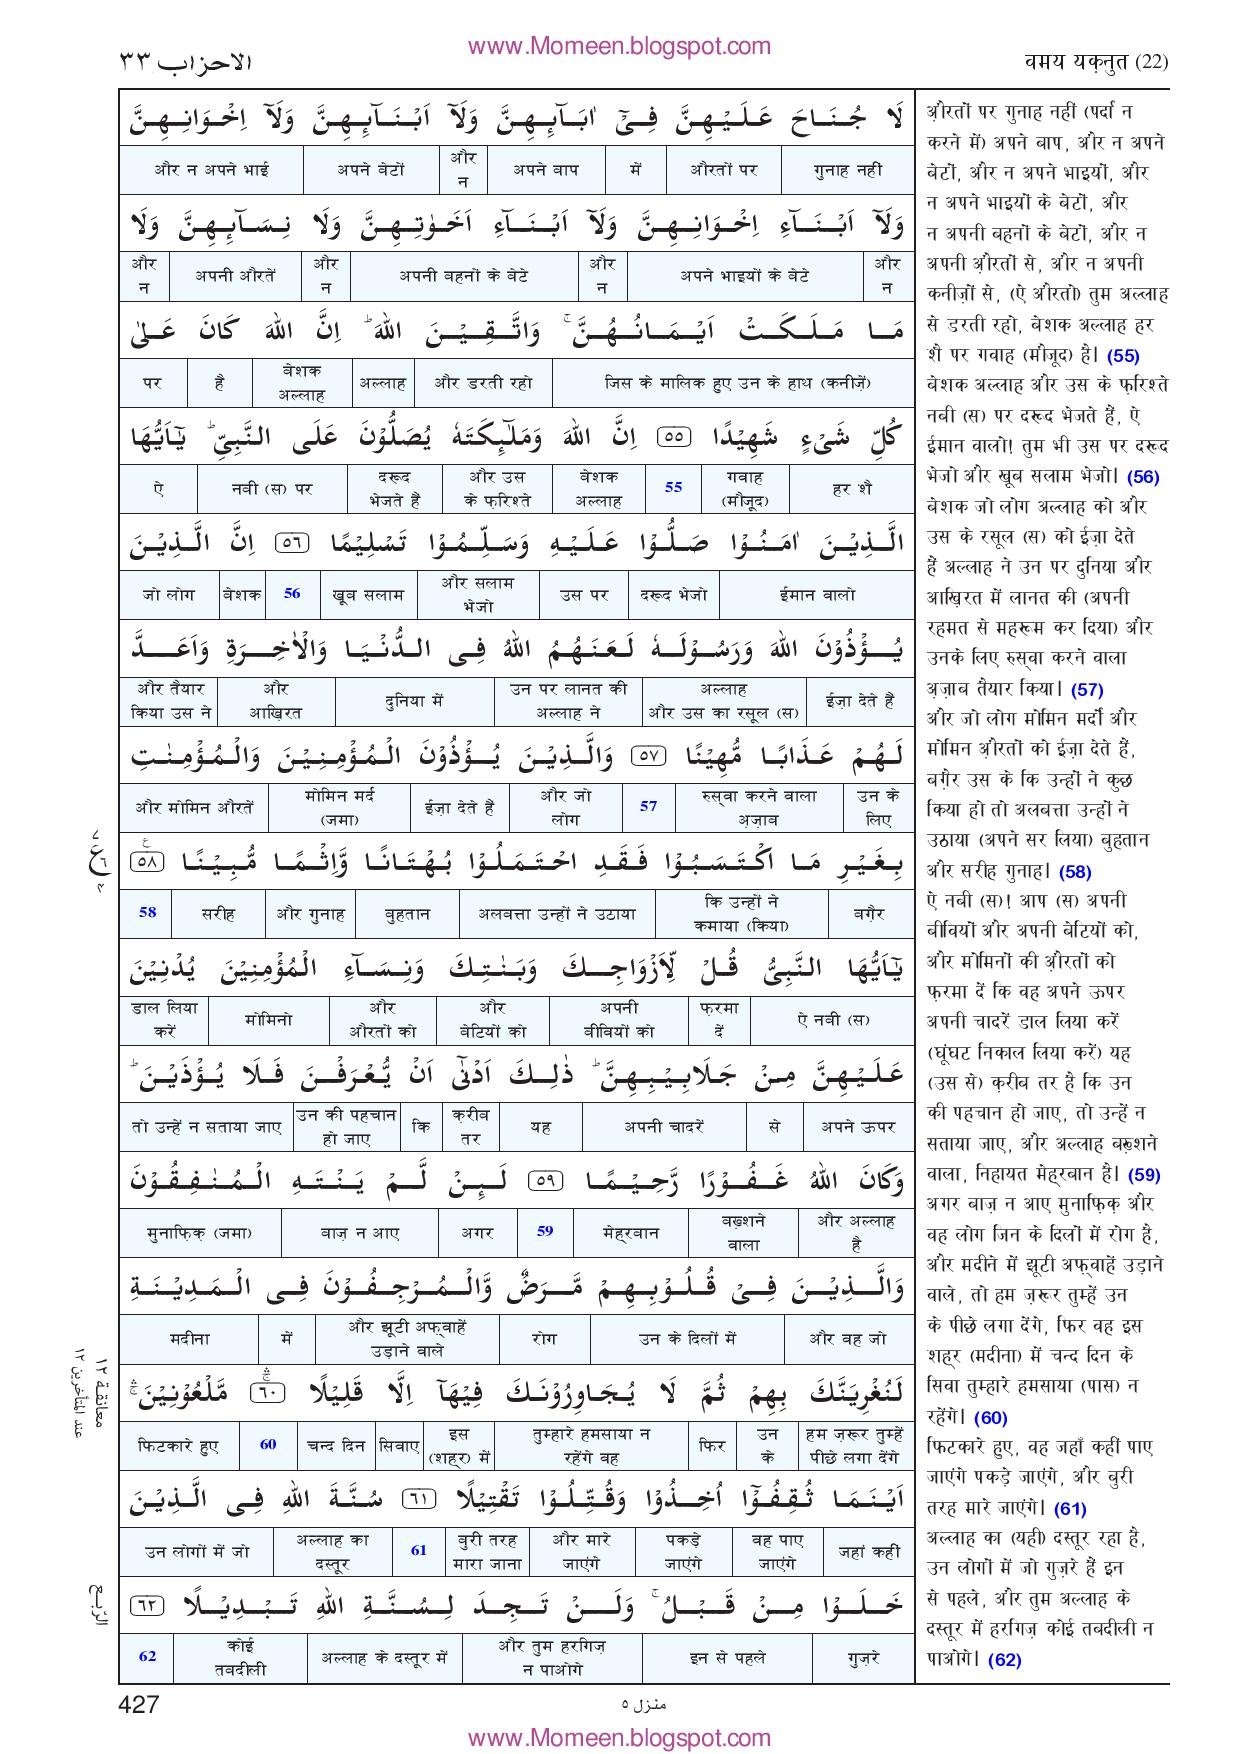 www.Momeen.blogspot.com
الاحزاب ٣٣
वमय यक़नुत (22)
لَا جُنَاحَ عَلَيْهِنَّ فِىْٓ اٰبَآئِهِنَّ وَلَآ اَبْنَآئِهِنَّ وَلَآ اِخْوَانِهِنَّ
गुनाह नहीं | औरतों पर | में | अपने बाप | और न | अपने बेटों | और न अपने भाई
وَلَآ اَبْنَآءِ اِخْوَانِهِنَّ وَلَآ اَبْنَآءِ اَخَوٰتِهِنَّ وَلَا نِسَآئِهِنَّ وَلَا
और न | अपने भाइयों के बेटे | और न | अपनी बहनों के बेटे | और न | अपनी औरतें | और न
مَا مَلَكَتْ اَيْمَانُهُنَّ ۚ وَاتَّقِيْنَ اللّٰهَ ؕ اِنَّ اللّٰهَ كَانَ عَلٰى
जिस के मालिक हुए उन के हाथ (कनीज़ें) | और डरती रहो | अल्लाह | बेशक अल्लाह | है | पर
كُلِّ شَىْءٍ شَهِيْدًا ٥٥ اِنَّ اللّٰهَ وَمَلٰٓئِكَتَهٗ يُصَلُّوْنَ عَلَى النَّبِىِّ ؕ يٰٓاَيُّهَا
हर शै | गवाह (मौजूद) | 55 | बेशक अल्लाह | और उस के फ़रिश्ते | दरूद भेजते हैं | नबी (स) पर | ऐ
الَّذِيْنَ اٰمَنُوْا صَلُّوْا عَلَيْهِ وَسَلِّمُوْا تَسْلِيْمًا ٥٦ اِنَّ الَّذِيْنَ
ईमान वालो | दरूद भेजो | उस पर | और सलाम भेजो | खूब सलाम | 56 | बेशक | जो लोग
يُؤْذُوْنَ اللّٰهَ وَرَسُوْلَهٗ لَعَنَهُمُ اللّٰهُ فِى الدُّنْيَا وَالْاٰخِرَةِ وَاَعَدَّ
ईज़ा देते हैं | अल्लाह और उस का रसूल (स) | उन पर लानत की अल्लाह ने | दुनिया में | और आख़िरत | और तैयार किया उस ने
لَهُمْ عَذَابًا مُّهِيْنًا ٥٧ وَالَّذِيْنَ يُؤْذُوْنَ الْمُؤْمِنِيْنَ وَالْمُؤْمِنٰتِ
उन के लिए | रुसवा करने वाला अज़ाब | 57 | और जो लोग | ईज़ा देते हैं | मोमिन मर्द (जमा) | और मोमिन औरतें
بِغَيْرِ مَا اكْتَسَبُوْا فَقَدِ احْتَمَلُوْا بُهْتَانًا وَّاِثْمًا مُّبِيْنًا ٥٨
बग़ैर | कि उन्हों ने कमाया (किया) | अलबत्ता उन्हों ने उठाया | बुहतान | और गुनाह | सरीह | 58
يٰٓاَيُّهَا النَّبِىُّ قُلْ لِّاَزْوَاجِكَ وَبَنٰتِكَ وَنِسَآءِ الْمُؤْمِنِيْنَ يُدْنِيْنَ
ऐ नबी (स) | फ़रमा दें | अपनी बीवियों को | और बेटियों को | और औरतों को | मोमिनो | डाल लिया करें
عَلَيْهِنَّ مِنْ جَلَابِيْبِهِنَّ ؕ ذٰلِكَ اَدْنٰٓى اَنْ يُّعْرَفْنَ فَلَا يُؤْذَيْنَ ؕ
अपने ऊपर | से | अपनी चादरें | यह | क़रीब तर | कि | उन की पहचान हो जाए | तो उन्हें न सताया जाए
وَكَانَ اللّٰهُ غَفُوْرًا رَّحِيْمًا ٥٩ لَئِنْ لَّمْ يَنْتَهِ الْمُنٰفِقُوْنَ
और अल्लाह है | बख़्शने वाला | मेहरबान | 59 | अगर | बाज़ न आए | मुनाफ़िक़ (जमा)
وَالَّذِيْنَ فِىْ قُلُوْبِهِمْ مَّرَضٌ وَّالْمُرْجِفُوْنَ فِى الْمَدِيْنَةِ
और वह जो | उन के दिलों में | रोग | और झूटी अफ़्वाहें उड़ाने वाले | में | मदीना
لَنُغْرِيَنَّكَ بِهِمْ ثُمَّ لَا يُجَاوِرُوْنَكَ فِيْهَآ اِلَّا قَلِيْلًا ٦٠ مَّلْعُوْنِيْنَ ۛ
हम ज़रूर तुम्हें पीछे लगा देंगे | उन के | फिर | तुम्हारे हमसाया न रहेंगे वह | इस (शहर) में | सिवाए | चन्द दिन | 60 | फिटकारे हुए
اَيْنَمَا ثُقِفُوْٓا اُخِذُوْا وَقُتِّلُوْا تَقْتِيْلًا ٦١ سُنَّةَ اللّٰهِ فِى الَّذِيْنَ
जहां कहीं | वह पाए जाएंगे | पकड़े जाएंगे | और मारे जाएंगे | बुरी तरह मारा जाना | 61 | अल्लाह का दस्तूर | उन लोगों में जो
خَلَوْا مِنْ قَبْلُ ۚ وَلَنْ تَجِدَ لِسُنَّةِ اللّٰهِ تَبْدِيْلًا ٦٢
गुज़रे | इन से पहले | और तुम हरगिज़ न पाओगे | अल्लाह के दस्तूर में | कोई तबदीली | 62
औ़रतों पर गुनाह नहीं (पर्दा न
करने में) अपने बाप, और न अपने
बेटों, और न अपने भाइयों, और
न अपने भाइयों के बेटों, और
न अपनी बहनों के बेटों, और न
अपनी औ़रतों से, और न अपनी
कनीज़ों से, (ऐ औरतो) तुम अल्लाह
से डरती रहो, बेशक अल्लाह हर
शै पर गवाह (मौजूद) है। (55)
बेशक अल्लाह और उस के फ़रिश्ते
नबी (स) पर दरूद भेजते हैं, ऐ
ईमान वालो! तुम भी उस पर दरूद
भेजो और खूब सलाम भेजो। (56)
बेशक जो लोग अल्लाह को और
उस के रसूल (स) को ईज़ा देते
हैं अल्लाह ने उन पर दुनिया और
आख़िरत में लानत की (अपनी
रहमत से महरूम कर दिया) और
उनके लिए रुस्वा करने वाला
अ़ज़ाब तैयार किया। (57)
और जो लोग मोमिन मर्दों और
मोमिन औ़रतों को ईज़ा देते हैं,
बग़ैर उस के कि उन्हों ने कुछ
किया हो तो अलबत्ता उन्हों ने
उठाया (अपने सर लिया) बुहतान
और सरीह गुनाह। (58)
ऐ नबी (स)! आप (स) अपनी
बीवियों और अपनी बेटियों को,
और मोमिनों की औ़रतों को
फ़रमा दें कि वह अपने ऊपर
अपनी चादरें डाल लिया करें
(घूंघट निकाल लिया करें) यह
(उस से) क़रीब तर है कि उन
की पहचान हो जाए, तो उन्हें न
सताया जाए, और अल्लाह बख़्शने
वाला, निहायत मेहरबान है। (59)
अगर बाज़ न आए मुनाफ़िक़ और
वह लोग जिन के दिलों में रोग है,
और मदीने में झूटी अफ़्वाहें उड़ाने
वाले, तो हम ज़रूर तुम्हें उन
के पीछे लगा देंगे, फिर वह इस
शहर (मदीना) में चन्द दिन के
सिवा तुम्हारे हमसाया (पास) न
रहेंगे। (60)
फिटकारे हुए, वह जहाँ कहीं पाए
जाएंगे पकड़े जाएंगे, और बुरी
तरह मारे जाएंगे। (61)
अल्लाह का (यही) दस्तूर रहा है,
उन लोगों में जो गुज़रे हैं इन
से पहले, और तुम अल्लाह के
दस्तूर में हरगिज़ कोई तबदीली न
पाओगे। (62)
معانقة ١٢
عند المتأخرين ١٢
الرّبع
427
منزل ٥
www.Momeen.blogspot.com